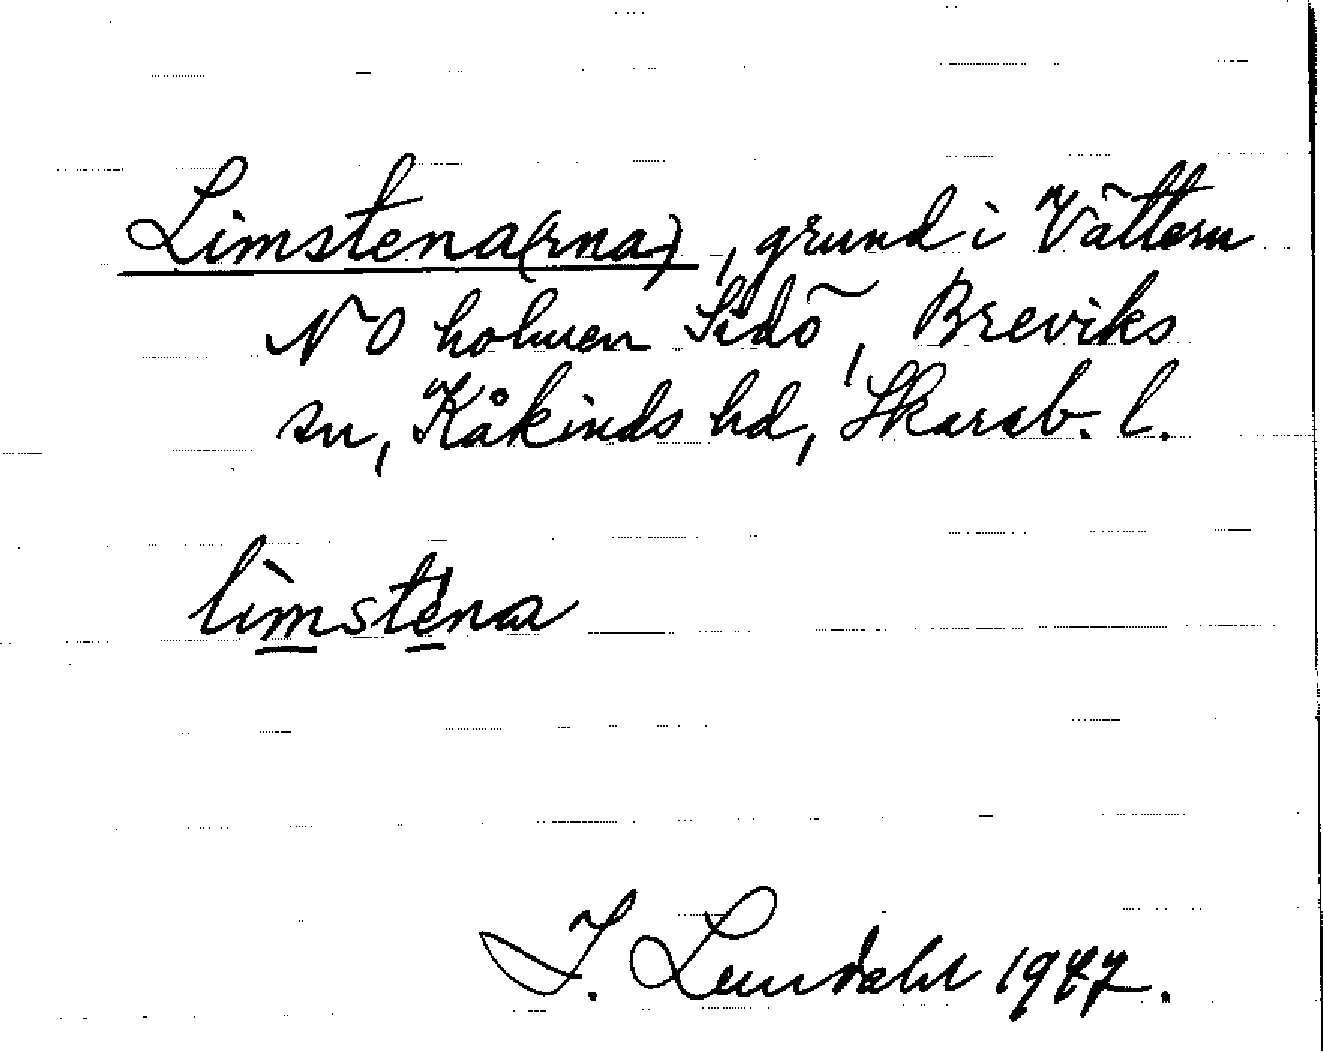 Limstena(rna), grund i Vättern
NO holmen Sidö, Breviks
sn, Kåkinds hd, Skarab. l.
lìmsténa
I. Lundahl 1947.